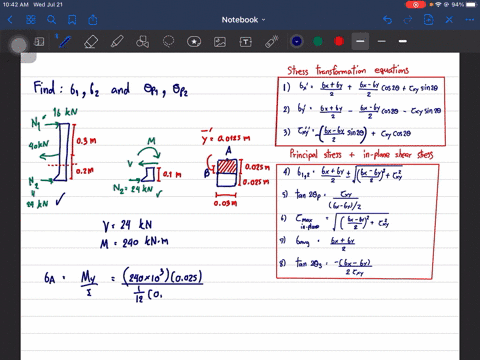 10:42 AM Wed Jul 21
94%
Notebook
Find: σ1, σ2 and θp1, θp2
N1 16 kN
40kN
0.3 m
0.2m
N2
24 kN
M
V
0.1 m
N2=24 kN
ȳ' = 0.0125 m
A
B
0.025 m
0.025m
0.05m
V = 24 kN
M = 240 kN·m
σA = My/I = (240×10³)(0.025)
1/12 (0.
Stress transformation equations
1) σx' = (σx+σy)/2 + (σx-σy)/2 cos2θ + τxy sin2θ
2) σy' = (σx+σy)/2 - (σx-σy)/2 cos2θ - τxy sin2θ
3) τxy' = -((σx-σy)/2 sin2θ) + τxy cos2θ
Principal stress + in-plane shear stress
4) σ1,2 = (σx+σy)/2 ± √((σx-σy)/2)² + τ²xy
5) tan 2θp = τxy/(σx-σy)/2
6) τmax in-plane = √((σx-σy)/2)² + τ²xy
7) σavg = (σx+σy)/2
8) tan 2θs = -(σx-σy)/2τxy